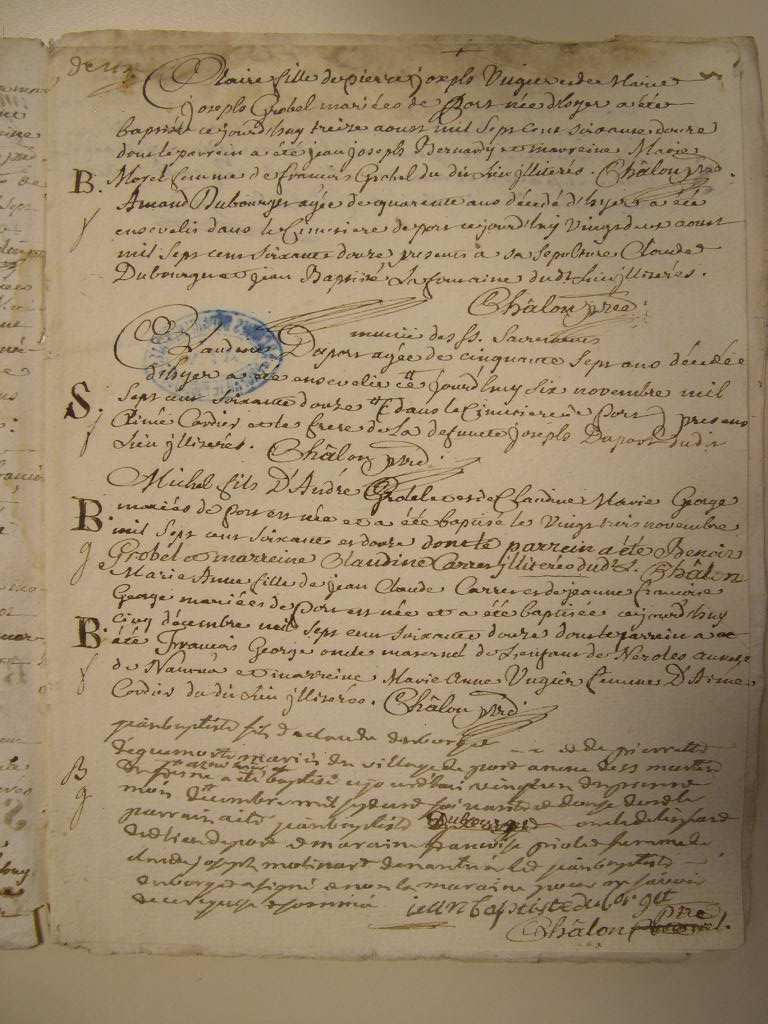 Claire fille de pierre joseph Vuguier et de Marie
joseph Grobel mariées de Port née d'hyer a été
baptisée ce jourd'huy treize aoust mil sept cent soixante douze
dont le parrein a été jean joseph Bernard et marreine Marie
B. Morel femme de francois Grobel du dit lieu jlliterés. Châlon prê.
Amand Dubourget agée de quarante ans décédé d'hyer a été
enseveli dans le Cimetiere de port cejourd'huy Vingt deux aoust
mil sept cent soixante douze presents a sa sepulture Claude
Dubourget et jean Baptiste la fontaine dudt lieu jlliterés.
Châlon prê.
munie des SS. Sacrements
Claudine Duport agée de cinquante sept ans décédée
d'hyer a été ensevelie ce jourd'huy six novembre mil
S. sept cent soixante douze dans le Cimetiere de Port presens
Aimé Cordier et le frere de la defuncte joseph Duport dudit
lieu jlliterés. Châlon prê.
Michel fils D'André Grobel et de Claudine Marie George
B. mariés de Port est née et a été baptisé le Vingt novembre
mil sept cent soixante et douze dont le parrein a été Benoit
Grobel et marreine Claudine Carrer jlliterés dudt L. Châlon
Marie Anne fille de jean Claude Carrer et de jeanne francoise
George mariées de Port est née et a été baptisée cejourd'huy
B. cinq décembre mil sept cent soixante douze dont le parrain a
été François George oncle maternel de l'enfant de Neroles
de Nantua et marreine Marie Anne Vuguier femme D'Aimé
Cordier du dit lieu jlliterés. Châlon prê.
jean baptiste fils de claude duborget et de pierrette
mariés du village de port
B a été baptisé
mois décembre mil sept cent soixante et douze dont le
parrain a été jean baptiste Dubourget oncle de l'enfant
de port et maraine francoise
joseph molinard de nantua le dt jean baptiste
duborget a signé et non la maraine pour ne savoir
de ce enquise et sommée jean baptiste duborget
Châlon prê